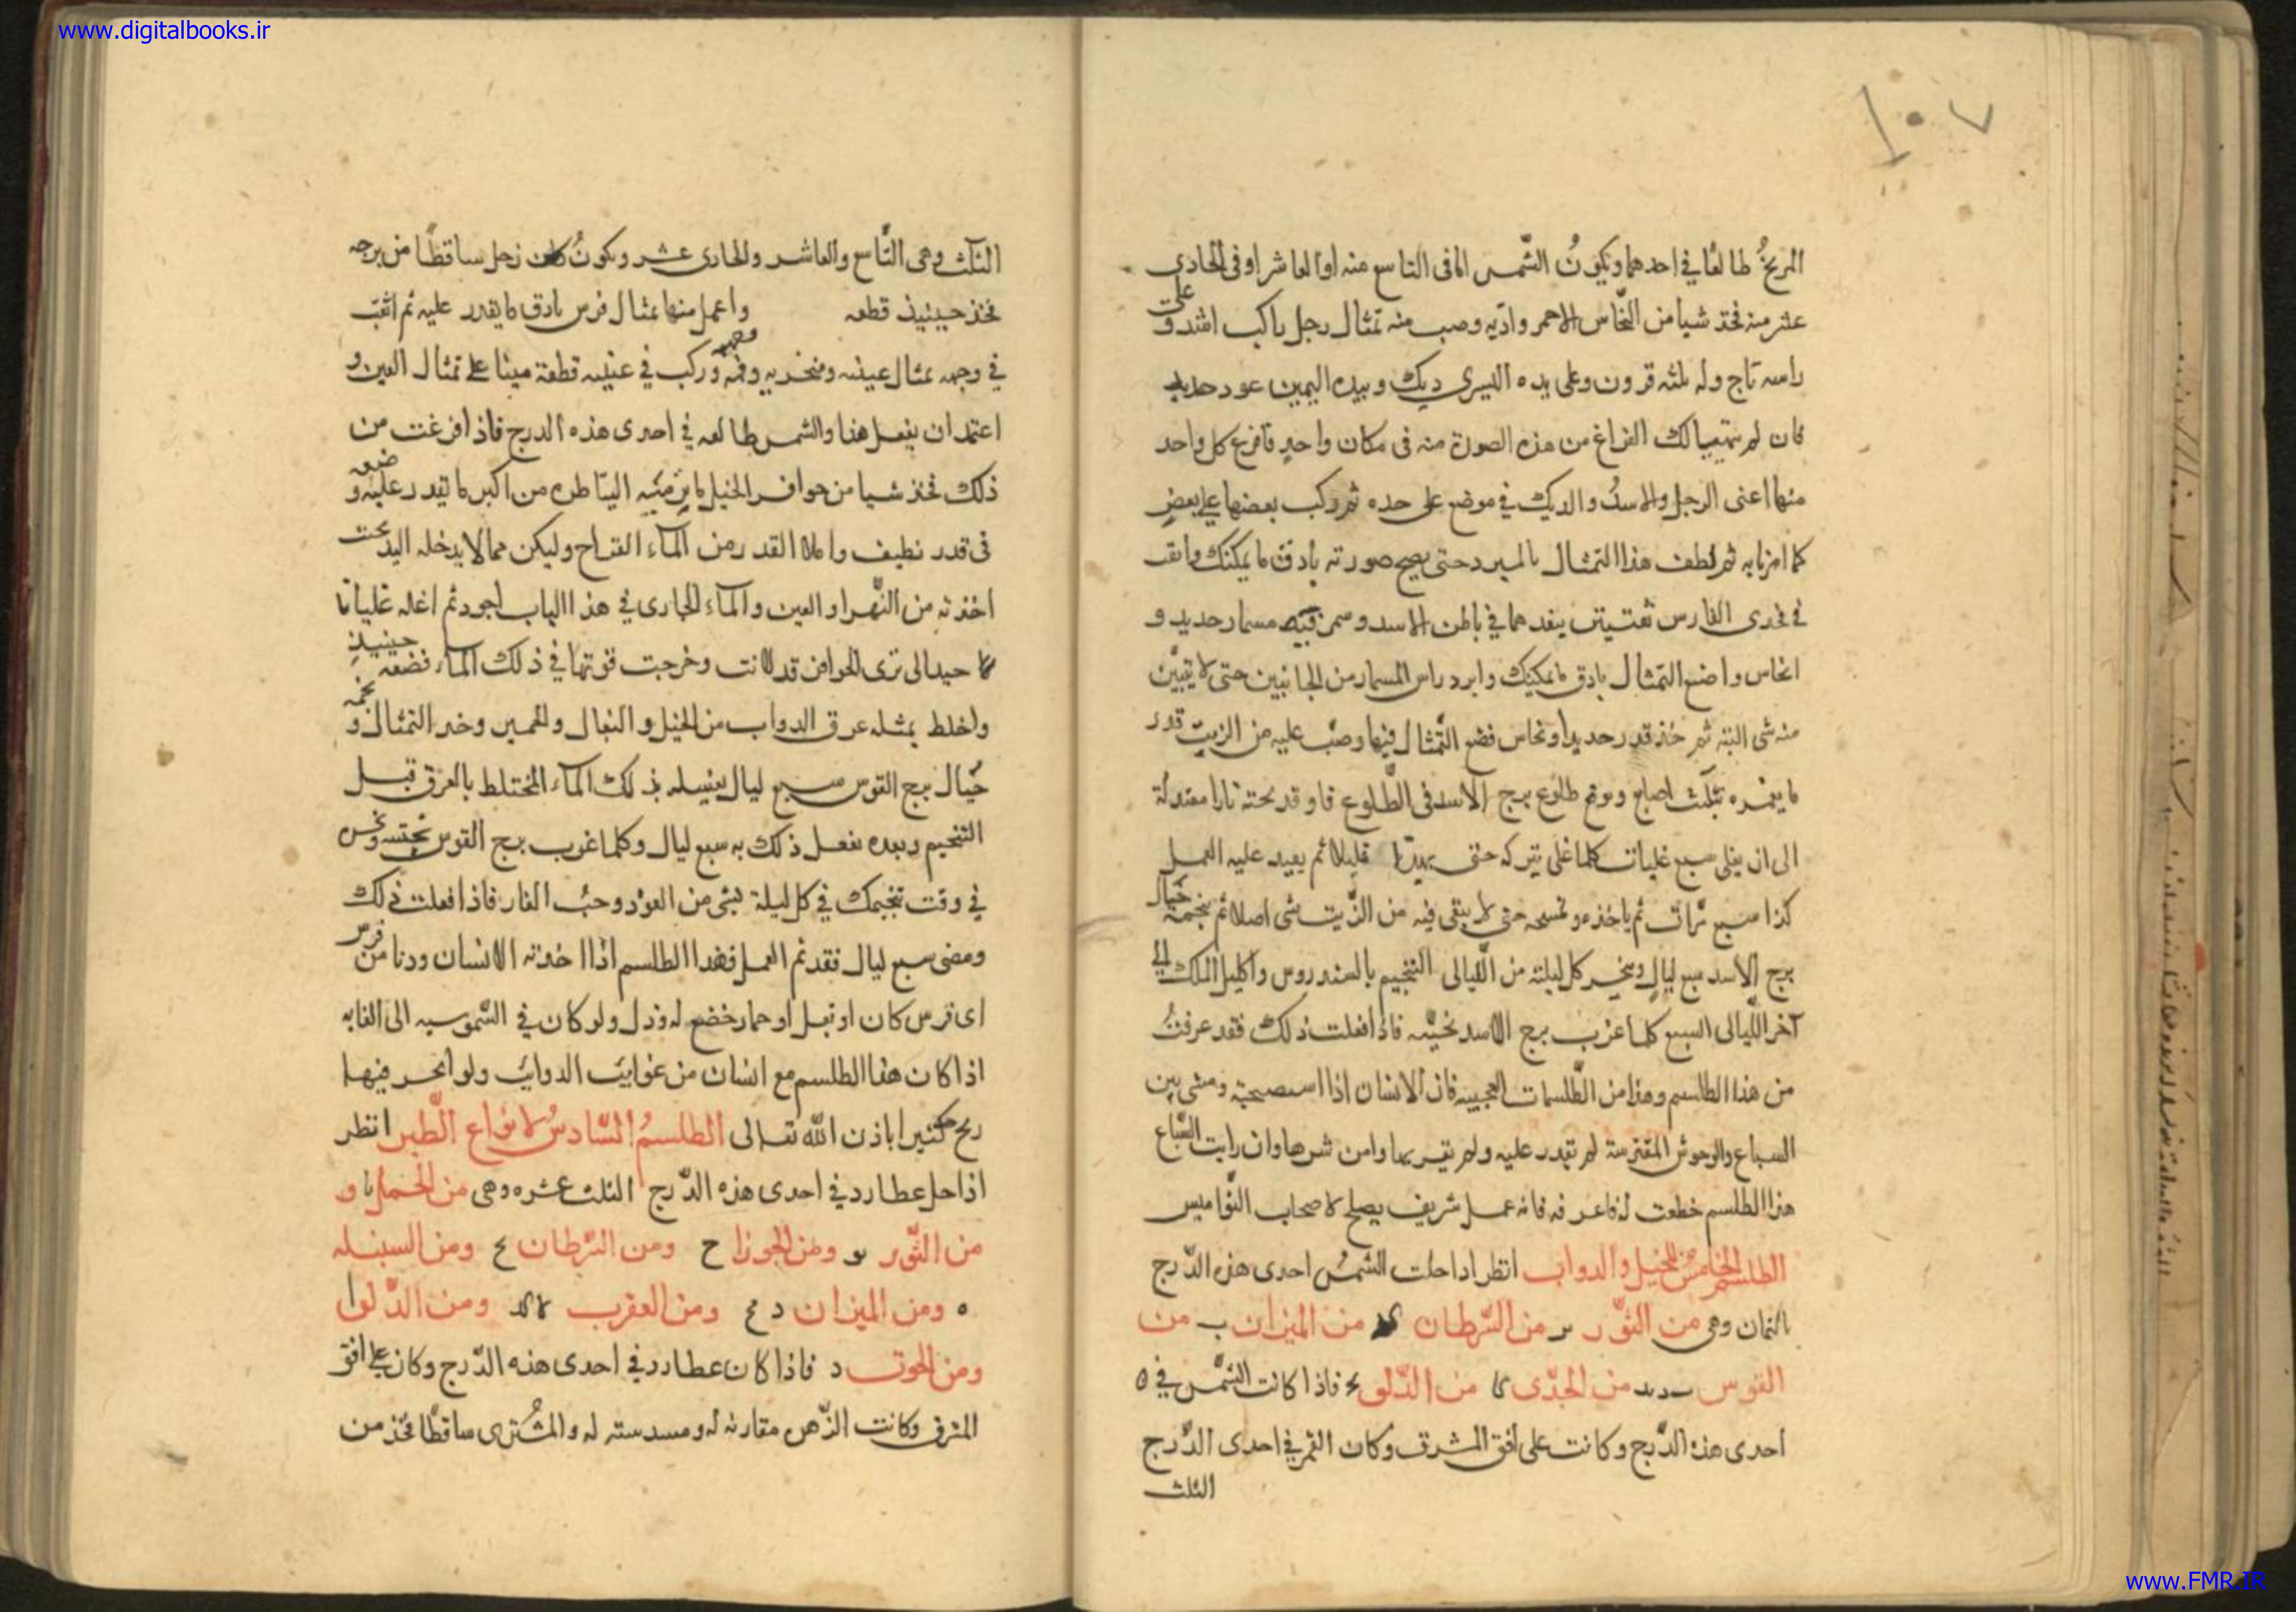 www.digitalbooks.ir
١٠٧
المريخُ طالعًا في احدهما ويكونُ الشّمس اما فى التاسع منه او العاشر او فى الحادى
عشر منه فخذ شيا من النّحاس الاحمر واذبه وصب منه تمثال رجل راكب اسد وعلى
راسه تاج وله ثلثه قرون وعلى يده اليسرى ديك وبيده اليمين عود حديد
فان لم يتهيا لك الفراغ من هذه الصورة منه فى مكان واحدٍ فافرغ كل واحد
منها اعنى الرجل والاسدُ والديك في موضع على حده ثم ركب بعضها على بعضٍ
كما امرنا به ثم لطف هذا التمثال بالمبرد حتى يصح صورته بادق ما يمكنك واثقب
في فخدى الفارس ثقبتين ينفدهما في باطن الاسد وسمر فيه مسمار حديد و
انحاس واضع التمثال بادق ما يمكنك وابرد راس المسمار من الجانبين حتى لا يتبيّن
منه شى البته ثم خذ قدر حديد او نحاس فضع التّمثال فيها وصبّ عليه من الزيت قدر
ما يغمره بثلث اصابع وتوقع طلوع برج الاسد فى الطّلوع فاوقد تحته نارا معتدلة
الى ان يغلى سبع غليات كلما غلى تتركه حتى يهدا قليلا ثم يعيد عليه العمل
كذا سبع مرّات ثم ياخذه وتمسحه حتى لا يبقى فيه من الزّيت شى اصلا ثم ينجمه حيال
برج الاسد سبع ليالٍ وتبخر كل ليلة من اللّيالى التنجيم بالسندروس واكليل الملك الى
آخر اللّيالى السبع كلما غرب برج الاسد نحّيته فاذا فعلت ذلك فقد عرفتُ
من هذا الطلسم وهذا من الطّلسمات العجيبه فان الانسان اذا استصحبة ومشى بين
السباع والوحوش المفترسة لم تقدر عليه ولم تقربها وامن شرها وان رايت السّباع
هذا الطلسم خضعت له فاعرفه فانه عمل شريف يصلح لاصحاب النّواميس
الطلسم الخامس للخيل والدواب انظر اذا حلت الشمسُ احدى هذه الدّرج
الثمان وهى من الثّور من السّرطان من الميزان ب من
القوس من الجدّى كا من الدّلو فاذا كانت الشّمس في
احدى هذه الدّرج وكانت على افق المشرق وكان القمر في احدى الدّرج
الثلث
الثلث وهى التّاسع والعاشر والحادى عشر ويكونُ زحل ساقطًا من برجه
فخذ حينيذ قطعه واعمل منها تمثال فرس بادق ما يقدر عليه ثم اثقب
في وجهه تمثال عينيه ومنخريه وفمه وركب في عينيه قطعة مينا على تمثال العين و
اعتمد ان يفعل هذا والشمس طالعه في احدى هذه الدرج فاذا فرغت من
ذلك فخذ شيا من حوافر الخيل ما يرميه البياطره من اكبر ما تقدر عليه وضعه
فى قدر نظيف واملا القدر من المآء القراح وليكن مما لا يدخله اليد تحت
اخذته من النّهر او العين والمآء الجارى في هذا الباب اجود ثم اغله غليانا
جيدا الى ترى الحوافر قد لانت وخرجت قوتها في ذلك المآء فضعه حينيذٍ
واخلط بمثله عرق الدواب من الخيل و البغال والحمير وخد التمثال ونجمه
حيال برج القوس سبع ليال يغسله بذلك المآء المختلط بالعرق قبل
التنجيم وبعده تفعل ذلك به سبع ليال وكلما غرب برج القوس نحّيته وبخر
في وقت تنجيمك في كل ليلة بشى من العود وحبّ الغار فاذا فعلت ذلك
ومضى سبع ليال فقد تم العمل فهذا الطلسم اذا اخذته الانسان ودنا من فرس
اى فرس كان او بغل او حمار خضع له وذل ولو كان في الشموسيه الى الغايه
اذا كان هذا الطلسم مع انسان من غوايب الدوابّ ولو اتّجر فيها
ربح كثيرا باذن الله تعالى الطلسمُ السّادسُ لانواع الطّير انظر
اذا حل عطارد في احدى هذه الدّرج الثلث عشره وهى من الحمل يا و
من الثّور يو ومن الجوزا ح ومن السّرطان ومن السنبله
ه ومن الميزان د ومن العقرب ومن الدّلو ا
ومن الحوت د فاذا كان عطارد في احدى هذه الدّرج وكان على افق
المشرق وكانت الزّهره مقارنه له ومسدسته له والمشترى ساقطًا فخذ من
www.FMR.IR